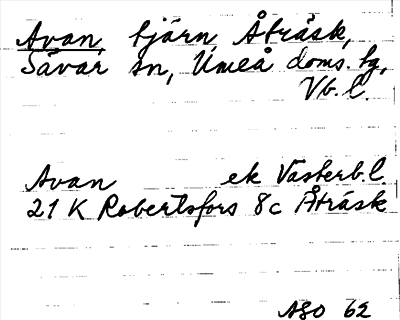 Avan, tjärn, Åträsk,
Sävar sn, Umeå doms. hg,
Vb. l.
Avan ek Västerb. l.
21 K Robertsfors 8c Åträsk
ASO 62